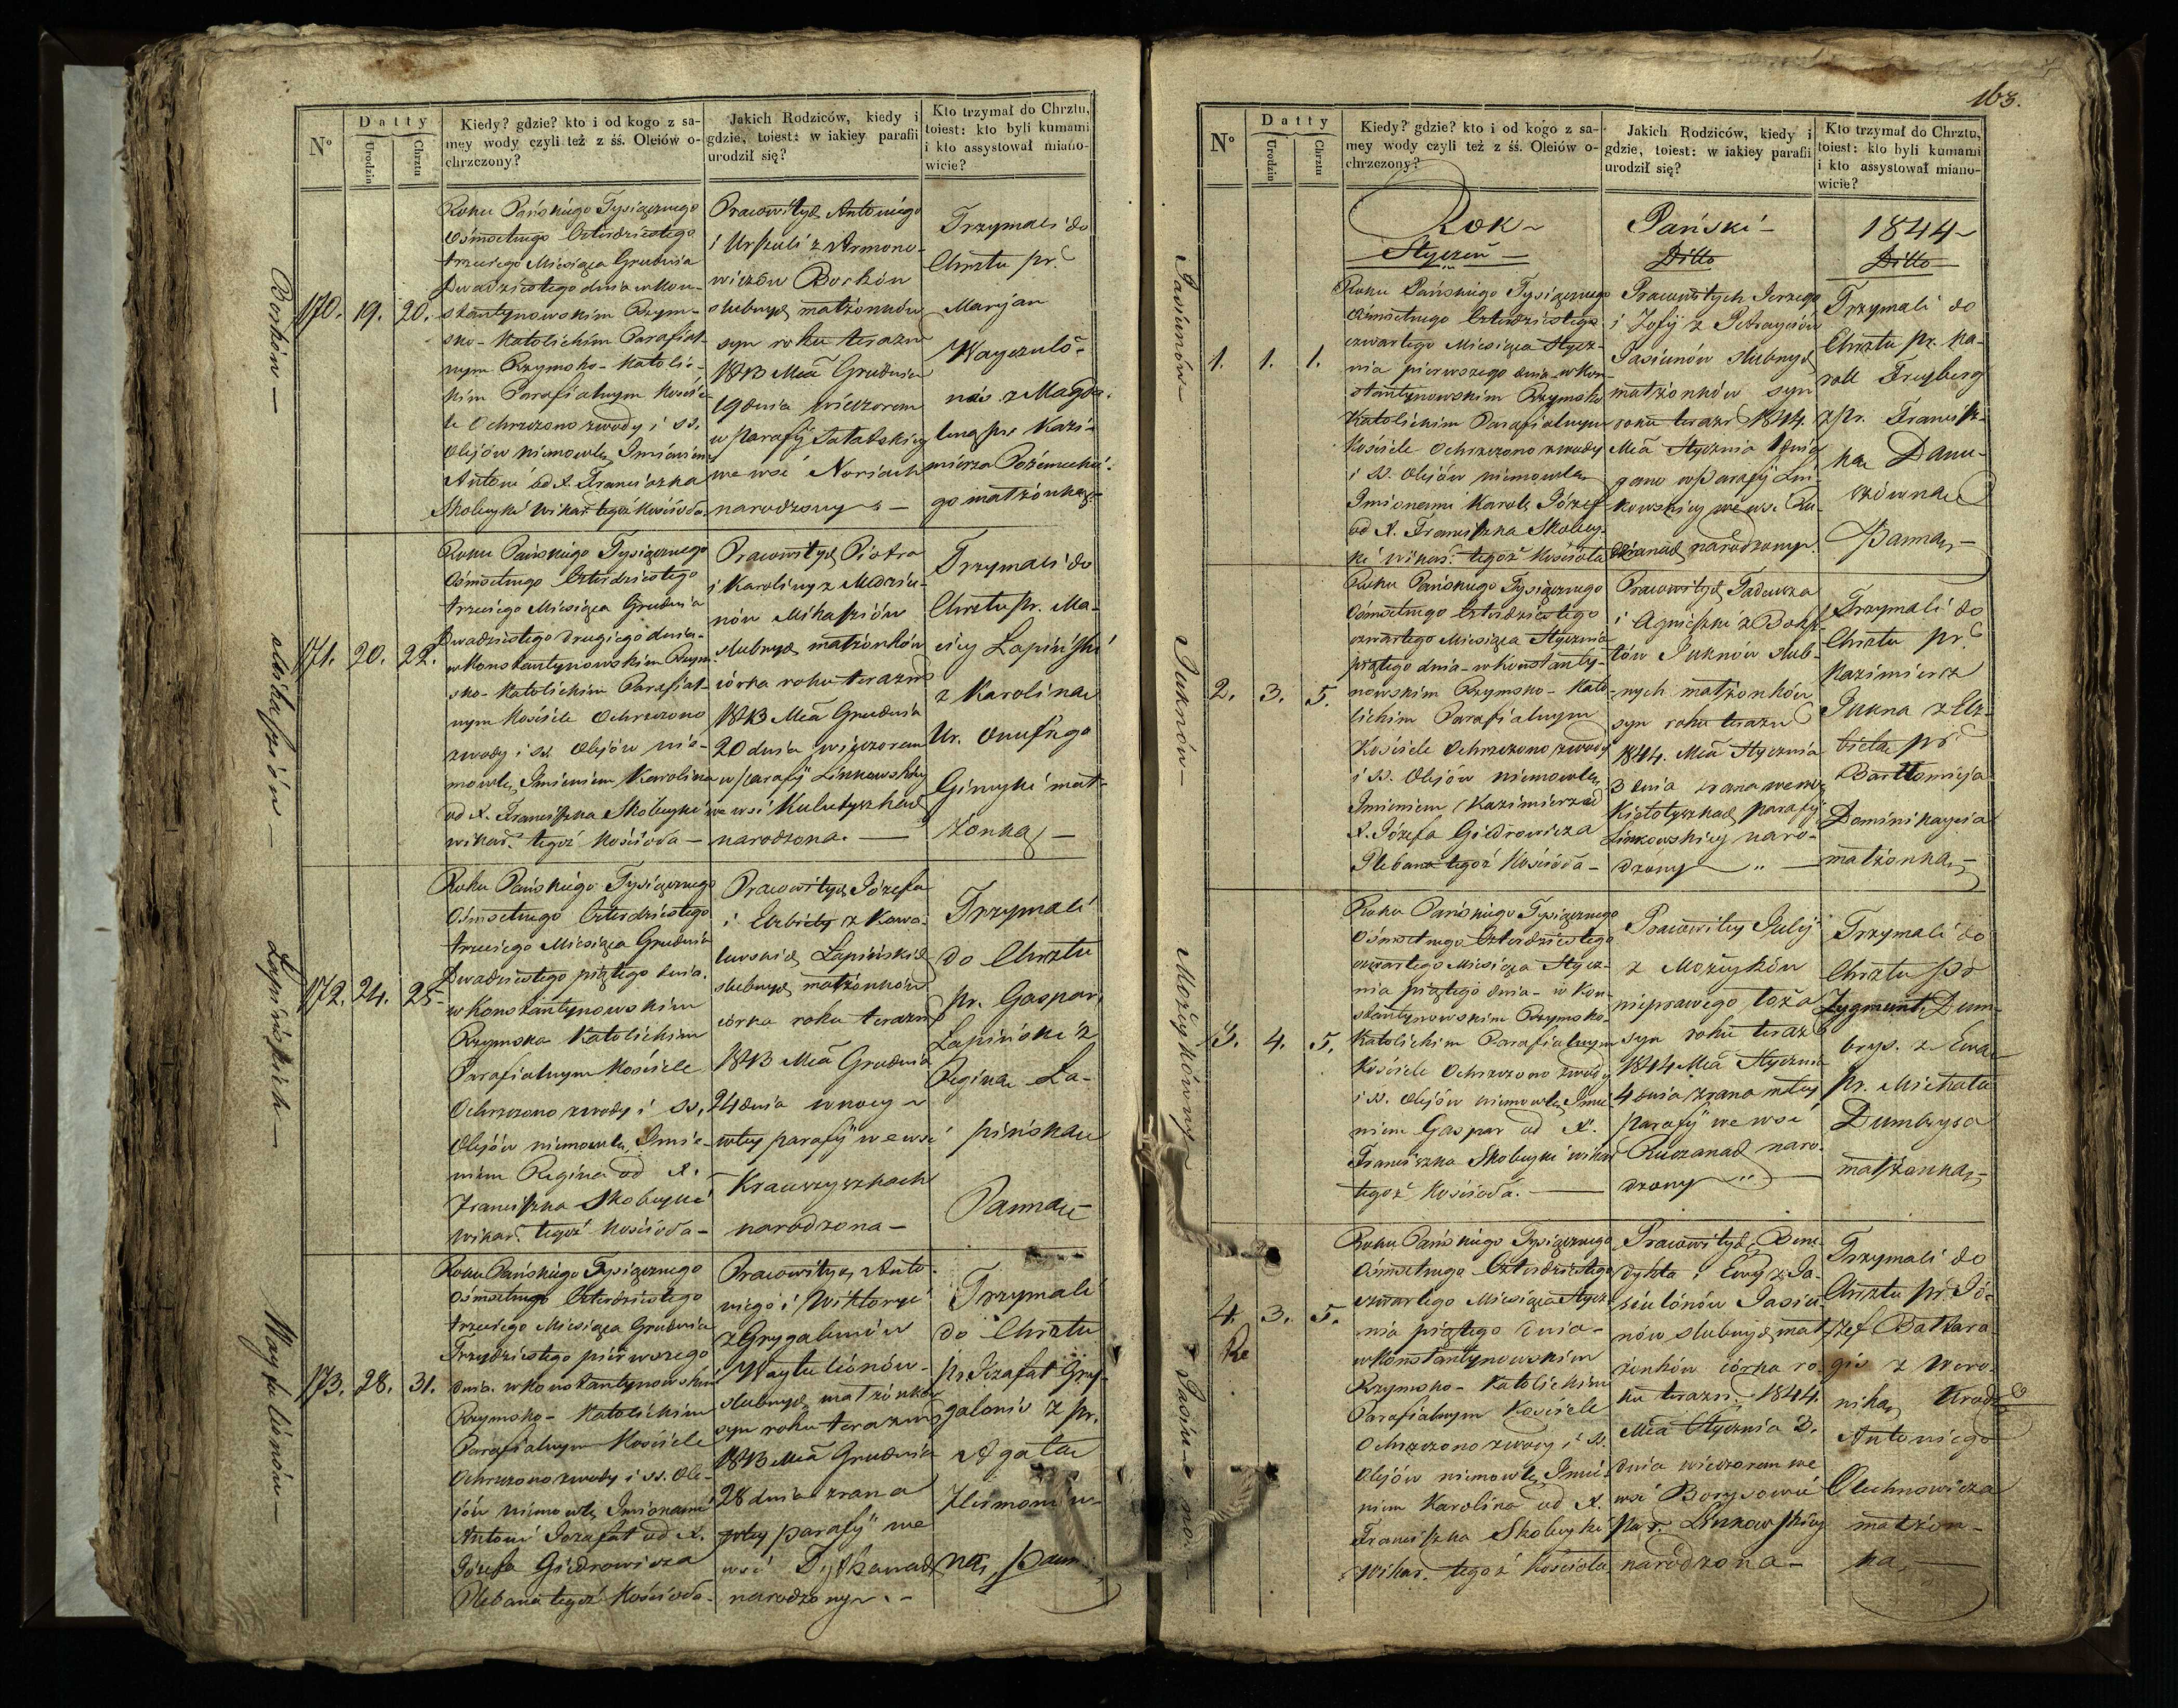 N°
Datty
Urodzin
Chrztu
Kiedy? gdzie? kto i od kogo z sa-
mey wody czyli też z śś. Oleiów o-
chrzczony?
Jakich Rodziców, kiedy i
gdzie, toiest: w iakiey parafii
urodził się?
Kto trzymał do Chrztu,
toiest: kto byli kumami
i kto assystował miano-
wicie?
170. 19. 20.
Roku Pańskiego Tysiącznego
Ośmsetnego Czterdziestego
trzeciego Miesiąca Grudnia
Dwadziestego dnia w Kon-
stantynowskim Rzym-
sko-Katolickim Parafial-
nym Rzymsko-Katolic-
kim Parafialnym Koście-
le Ochrzczono z wody i SS.
Olejów niemowle Imieniem
Antoni od X. Franciszka
Skobeyki wikar. tegoż Kościoła
Pracowitych Antoniego
i Urszuli z Armono-
wiczów Borków
ślubnych małżonków
syn roku terazn.
1843 Mca Grudnia
19 dnia wieczorem
w Parafij
we wsi Noriach
narodzony
Trzymali do
Chrztu pr.
Maryan
z Magda-
leną pr. Kazi-
mierza
go małżonką
171. 20. 22.
Roku Pańskiego Tysiącznego
Ośmsetnego Czterdziestego
trzeciego Miesiąca Grudnia
Dwadziestego drugiego dnia
w Konstantynowskim Rzym-
sko-Katolickim Parafial-
nym Kościele Ochrzczono
z wody i SS. Olejów nie-
mowle Imieniem Karolina
od X. Franciszka Skobeyki
wikar. tegoż Kościoła
Pracowitych Piotra
i Karoliny z Medziu-
nów Mikasziów
ślubnych małżonków
córka roku terazn.
1843 Mca Grudnia
20 dnia wieczorem
w parafij Linkowskiey
we wsi
narodzona.
Trzymali do
Chrztu pr. Ma-
ciey Łapiński
z Karoliną
Ur. Onufrego
mał-
żonką
172. 24. 25.
Roku Pańskiego Tysiącznego
Ośmsetnego Czterdziestego
trzeciego Miesiąca Grudnia
Dwadziestego piątego dnia
w Konstantynowskim
Rzymsko Katolickim
Parafialnym Kościele
Ochrzczono z wody i SS.
Olejów niemowle Imie-
niem Regina od X.
Franciszka Skobeyki
wikar. tegoż Kościoła
Pracowitych Józefa
i Elżbiety z Kowa-
lewskich Łapińskich
ślubnych małżonków
córka roku terazn.
1843 Mca Grudnia
24 dnia w nocy
w tey parafij we wsi
Krawszyszkach
narodzona
Trzymali
do Chrztu
pr. Gaspar
Łapiński z
Reginą Ła-
pińską
Panną
173. 28. 31.
Roku Pańskiego Tysiącznego
Ośmsetnego Czterdziestego
trzeciego Miesiąca Grudnia
Trzydziestego pierwszego
dnia w Konstantynowskim
Rzymsko-Katolickim
Parafialnym Kościele
Ochrzczono z wody i SS. Ole-
jów niemowle Imionami
Antoni Jozafat od X.
Józefa Giedrowicza
Plebana tegoż Kościoła
Pracowitych Anto-
niego i Wiktoryi
z Grygaluniów
Waytulionów
ślubnych małżonków
syn roku terazn.
1843 Mca Grudnia
28 dnia z rana
w tey parafij we
wsi
narodzony
Trzymali
do Chrztu
pr. Jozafat Gry-
galonis z pr.
Agatą
ną, Pann
Borków
Mikasziów
Łapińskich
Waytulionów
163.
N°
Datty
Urodzin
Chrztu
Kiedy? gdzie? kto i od kogo z sa-
mey wody czyli też z śś. Oleiów o-
chrzczony?
Jakich Rodziców, kiedy i
gdzie, toiest: w iakiey parafii
urodził się?
Kto trzymał do Chrztu,
toiest: kto byli kumami
i kto assystował miano-
wicie?
Rok Pański 1844
Styczeń Ditto Ditto
1. 1. 1.
Roku Pańskiego Tysiącznego
Ośmsetnego Czterdziestego
czwartego Miesiąca Stycz-
nia pierwszego dnia w Kon-
stantynowskim Rzymsko
Katolickim Parafialnym
Kościele Ochrzczono z wody
i SS. Olejów niemowle
Imionami Karol Józef
od X. Franciszka Skobey-
ki wikar. tegoż Kościoła
Pracowitych Jerzego
i Zofij z Petrayciów
Jasiunów ślubnych
małżonków syn
roku terazn. 1844.
Mca Stycznia 1 dnia
rano w Parafij Lin-
kowskiey we wsi
narodzony.
Trzymali do
Chrztu Pr. Ka-
rol Freyberg
z pr. Francisz-
ką Danu-
szówną
Panną
2. 3. 5.
Roku Pańskiego Tysiącznego
Ośmsetnego Czterdziestego
czwartego Miesiąca Stycznia
piątego dnia w Konstanty-
nowskim Rzymsko-Kato-
lickim Parafialnym
Kościele Ochrzczono z wody
i SS. Olejów niemowle
Imieniem Kazimierz od
X. Józefa Giedrowicza
Plebana tegoż Kościoła
Pracowitych Tadeusza
i Agnieszki z
tów Juknów ślub-
nych małżonków
syn roku terazn.
1844. Mca Stycznia
3 dnia z rana we wsi
parafij
Linkowskiey naro-
dzony
Trzymali do
Chrztu pr.
Kazimierz
Jukna z Elż-
bietą pr.
Bartłomieja
Dominikaycia
małżonką
3. 4. 5.
Roku Pańskiego Tysiącznego
Ośmsetnego Czterdziestego
czwartego Miesiąca Stycz-
nia piątego dnia w Kon-
stantynowskim Rzymsko-
Katolickim Parafialnym
Kościele Ochrzczono z wody
i SS. Olejów niemowle Imie-
niem Gaspar od X.
Franciszka Skobeyki wikar
tegoż Kościoła.
Pracowitey Julij
z Możeyków
nieprawego łoża
syn roku teraz.
1844 Mca Stycznia
4 dnia z rana w tey
parafij we wsi
naro-
dzony
Trzymali do
Chrztu pr
Zygmunt Dum-
brys z Ewą
pr. Michała
Dumbrysa
małżonką
4. 3. 5.
Roku Pańskiego Tysiącznego
Ośmsetnego Czterdziestego
czwartego Miesiąca Stycz-
nia piątego dnia
w Konstantynowskim
Rzymsko-Katolickim
Parafialnym Kościele
Ochrzczono z wody i SS.
Olejów niemowle Imie-
niem Karolina od X.
Franciszka Skobeyki
wikar. tegoż Kościoła
Pracowitych Bene-
dykta i Ewy z Ja-
siulonów Jasiu-
nów ślubnych mał-
żonków córka ro-
ku terazn. 1844.
Mca Stycznia 3.
dnia wieczorem we
wsi Borysowie
Par. Linkowskiey
narodzona
Trzymali do
Chrztu pr. Jó-
zef Bałtara-
gis z Wero-
niką Urodz
Antoniego
Olechnowicza
małżon-
ką
Jasiunów
Juknów
Jasiu-nów